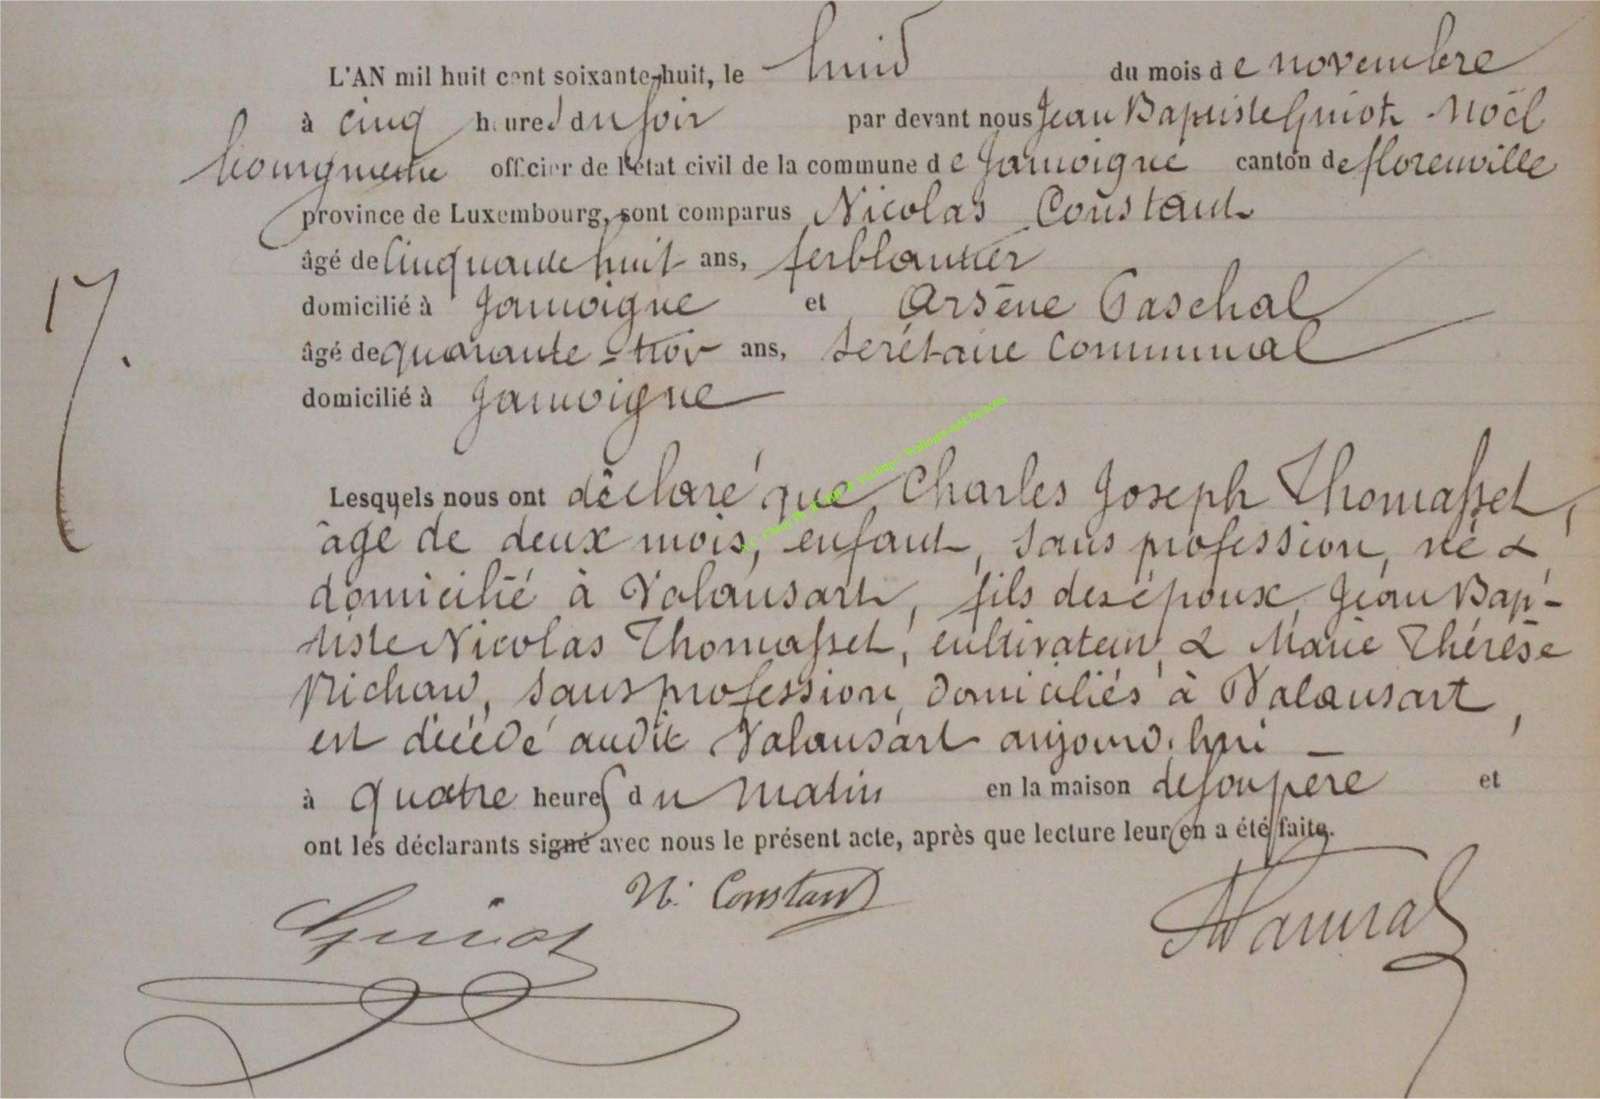 L'AN mil huit cent soixante-huit, le huid du mois de novembre
à cinq heures du soir par devant nous Jean Baptiste Guiot Noël
bourgmestre officier de l'état civil de la commune de Jamoigne canton de florenville
province de Luxembourg, sont comparus Nicolas Constant
âgé de Cinquante huit ans, ferblantier
domicilié à Jamoigne et Arsène Paschal
âgé de quarante-trois ans, serétaire Communal
domicilié à Jamoigne
17.
Lesquels nous ont déclaré que Charles Joseph Thomasset,
âgé de deux mois, enfant, sans profession, né &
domicilié à Valansart, fils des époux Jean Bap-
tiste Nicolas Thomasset, cultivateur & Marie Thérèse
Richard, sans profession, domiciliés à Valansart,
est décédé audit Valansart aujourd'hui
à quatre heures du matin en la maison de son père et
ont les déclarants signé avec nous le présent acte, après que lecture leur en a été faite.
Guiot N. Constant